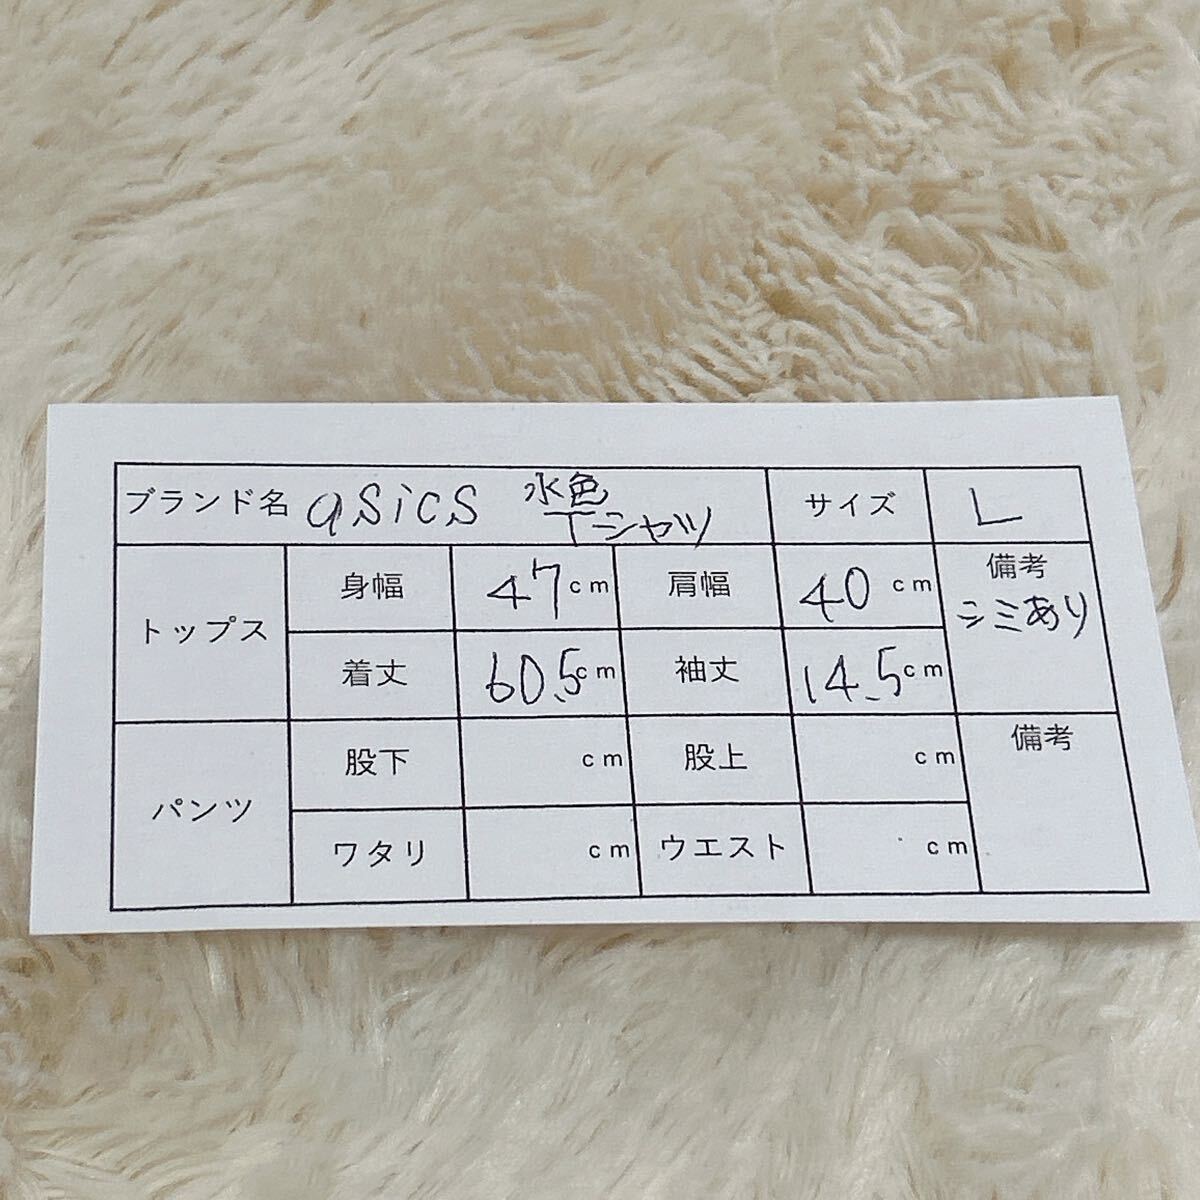 ブランド名 asics 水色 Tシャツ サイズ L
トップス 身幅 47cm 肩幅 40cm 備考 シミあり
着丈 60.5cm 袖丈 14.5cm
パンツ 股下 cm 股上 cm 備考
ワタリ cm ウエスト cm